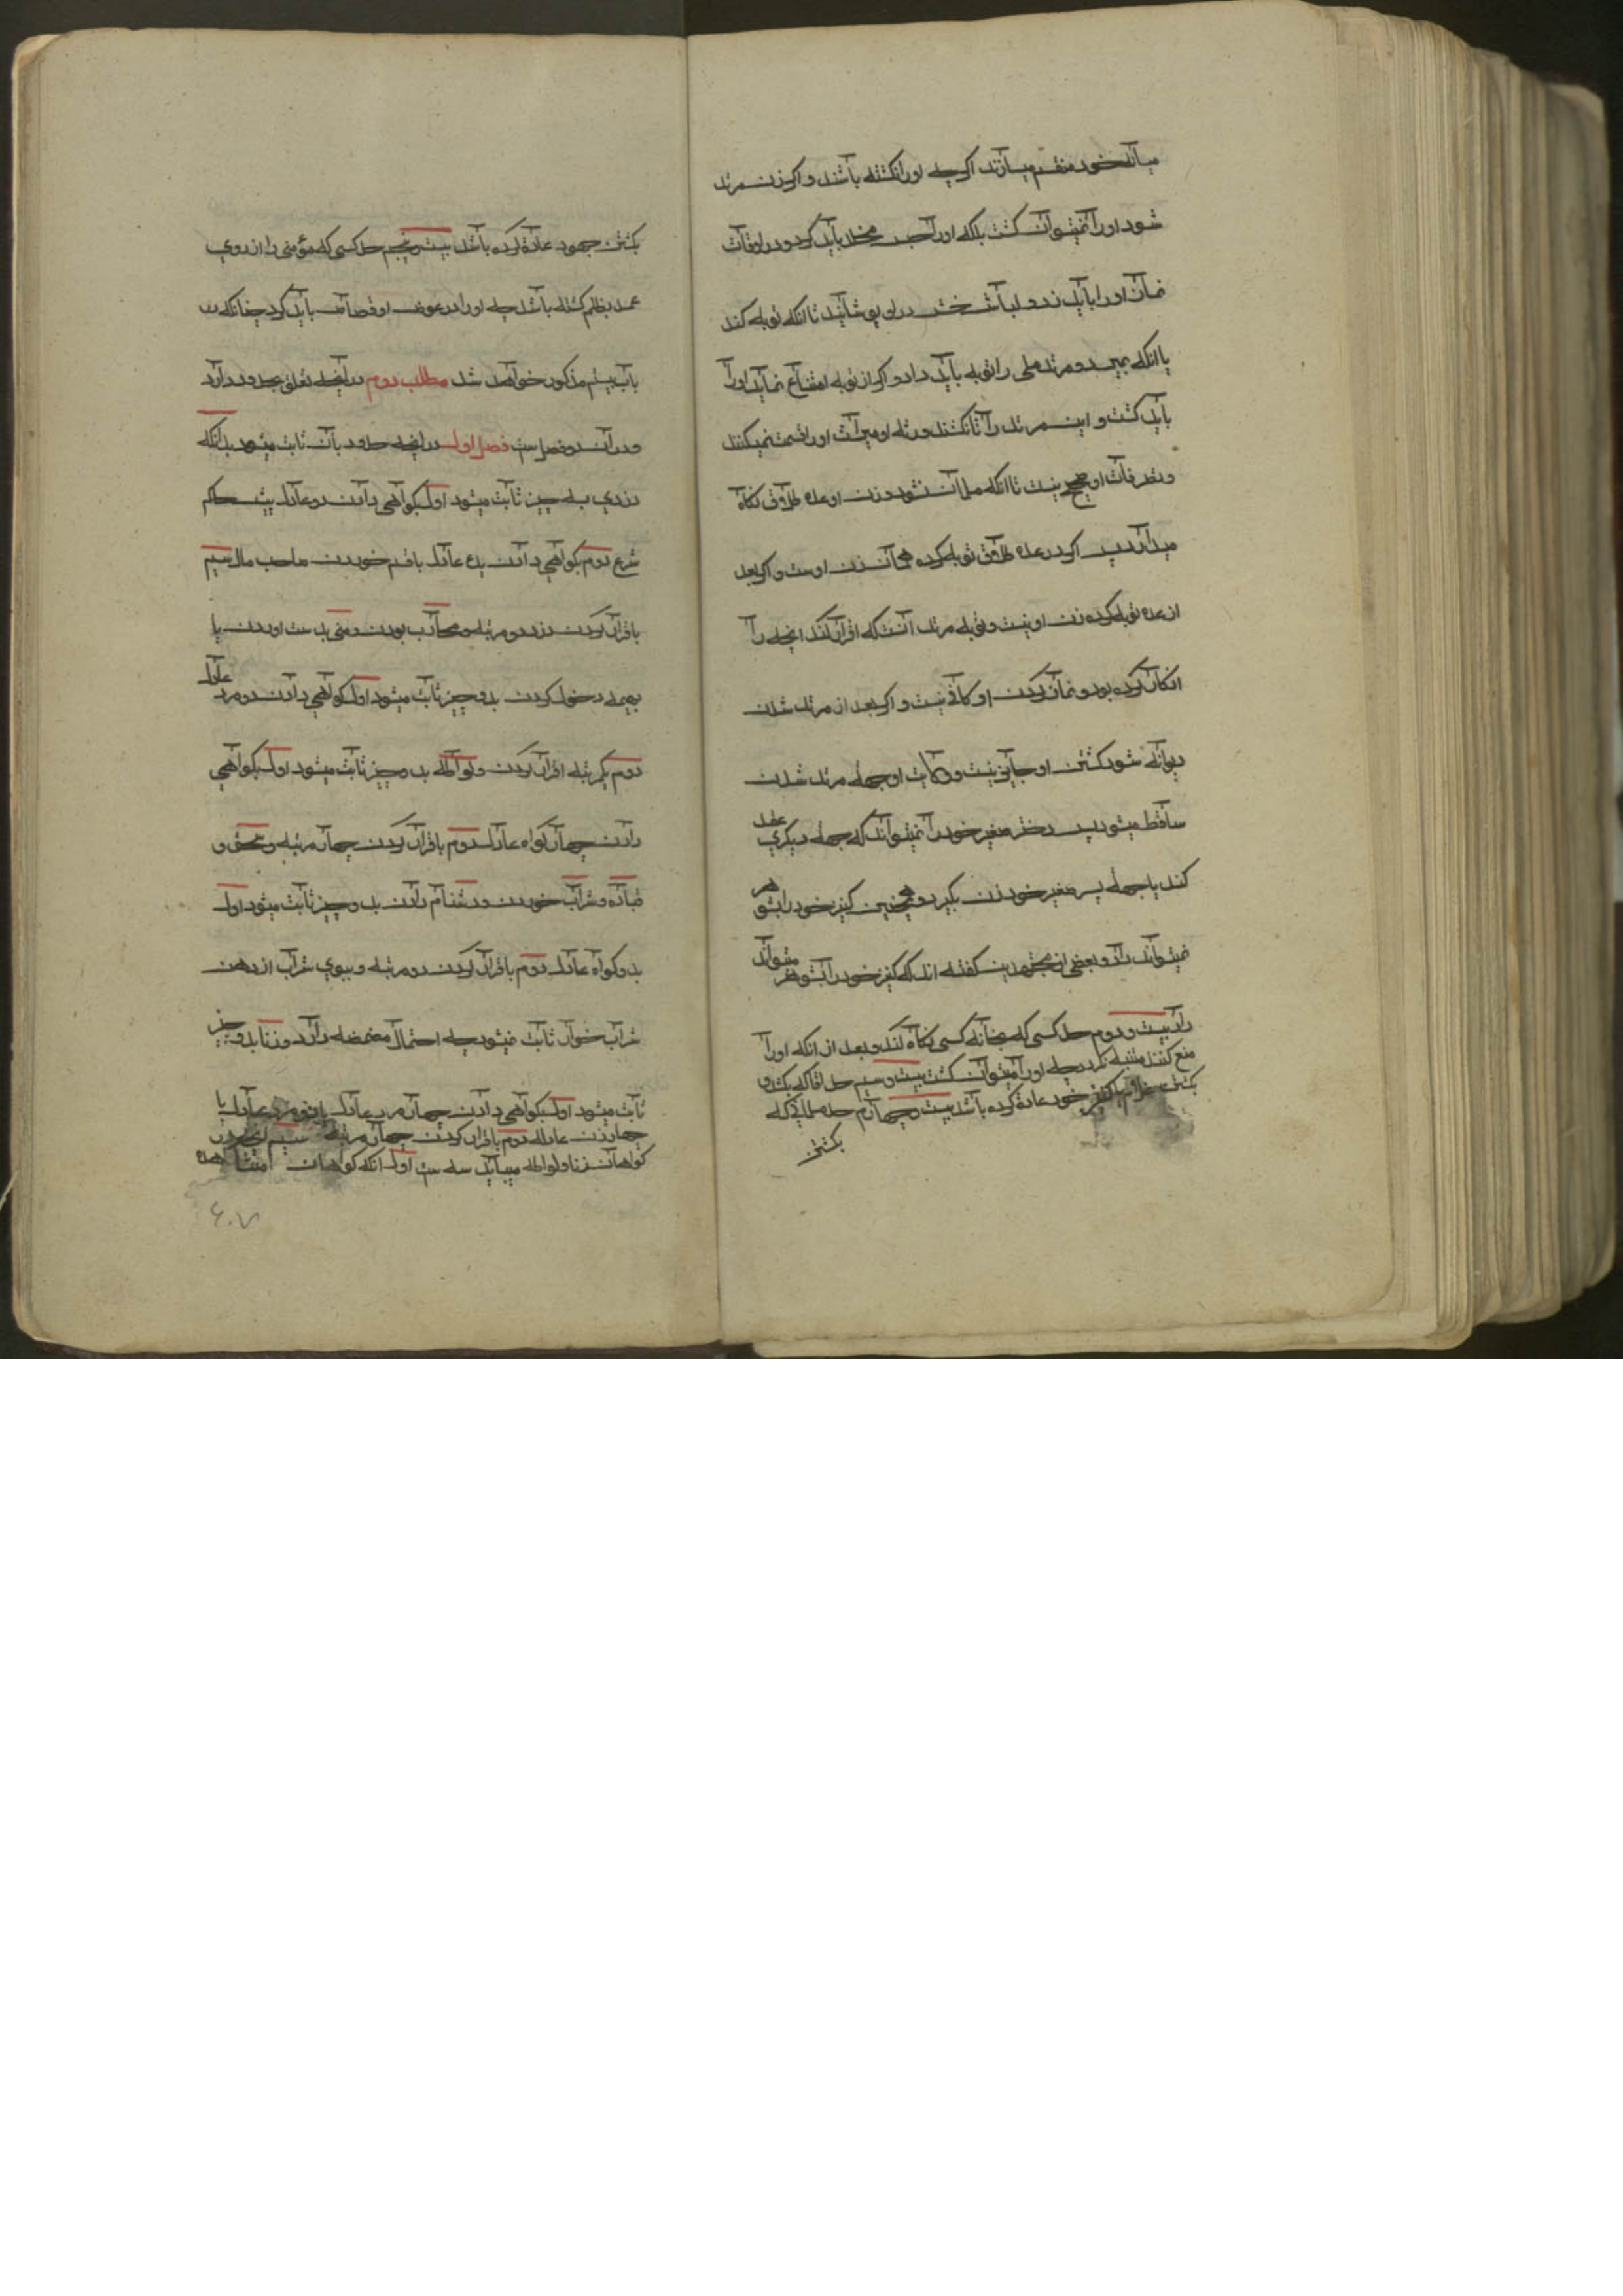 میانه خود منقسم میسازند اگرچه او را نکشته باشند و اگر زن مرتد
شود او را نمیتوان کشت بلکه او را حبس مخلد باید کرد و در اوقات
نماز او را باید زد و لباس خشن در او پوشانید تا انکه توبه کند
یا انکه بمیرد و مرتد ملی را توبه باید داد و اگر از توبه امتناع نماید او را
باید کشت و این مرتد را تا نکشند ورثه او میراث او را قسمت نمیکنند
و تصرفات او صحیح نیست تا انکه مسلمان نشود و زن او عده طلاق نکاه
میدارد پس اگر در عده طلاق توبه کرده همان زن اوست و اگر بعد
از عده توبه کرده زن او نیست و توبه مرتد آنست که اقرار کند انچه را
انکار کرده بود و نماز کردن او کافی نیست و اگر بعد از مرتد شدن
دیوانه شود کشتن او جایز نیست و ولایت او بجهة مرتد شدن
ساقط میشود پس دختر صغیر خود را نمیتواند که بجهة دیگری عقد
کند یا بجهة پسر صغیر خود زن بگیرد و همچنین کنیز خود را بشوهر
نمیتواند داد و بعضی از مجتهدین گفته اند که کنیز خود را بشوهر میتواند
داد بیست و دوم حد کسی که بخانه کسی نکاه کند و بعد از انکه او را
منع کنند متنبه نکردد چه او را میتوان کشت بیست و سیم حد اقا که بکشتن
غلام یا کنیز خود عادة کرده باشد بیست و چهارم حد مسلمانی که
بکشتن
بکشتن جهود عادة کرده باشد بیست و پنجم حد کسی که مؤمنی را از روی
عمد بظلم کشته باشد چه او را در عوض او قصاص باید کرد چنانکه در
باب بیستم مذکور خواهد شد مطلب دوم در آنچه تعلق بحدود دارد
و در آن دو فصل ست فصل اول در انچه حدود بآن ثابت میشود بدانکه
دزدی بسه چیز ثابت میشود اول بگواهی دادن دو عادل پیش حاکم
شرع دوم بگواهی دادن یک عادل با قسم خوردن صاحب مال سیم
باقرار کردن دزد دو مرتبه و محارب بودن و منی بدست اوردن یا
بهیمه دخول کردن بدو چیز ثابت میشود اول گواهی دادن دو مرد عادل
دوم یکمرتبه اقرار کردن و لواطه بدو چیز ثابت میشود اول بگواهی
دادن چهار گواه عادل دوم باقرار کردن چهار مرتبه و سحق و
قیاده و شراب خوردن و دشنام دادن بدو چیز ثابت میشود اول
بدو گواه عادل دوم باقرار کردن دو مرتبه و ببوی شراب از دهن
شراب خوار ثابت نمیشود چه احتمال مضمضه دارد و زنا بدو چیز
ثابت میشود اول بگواهی دادن چهار مرد عادل یا دو مرد عادل با
چهار زن عادله دوم باقرار کردن چهار مرتبه
گواهان زنا و لواطه میباید سه ست اول انکه گواهان
۶۰۷